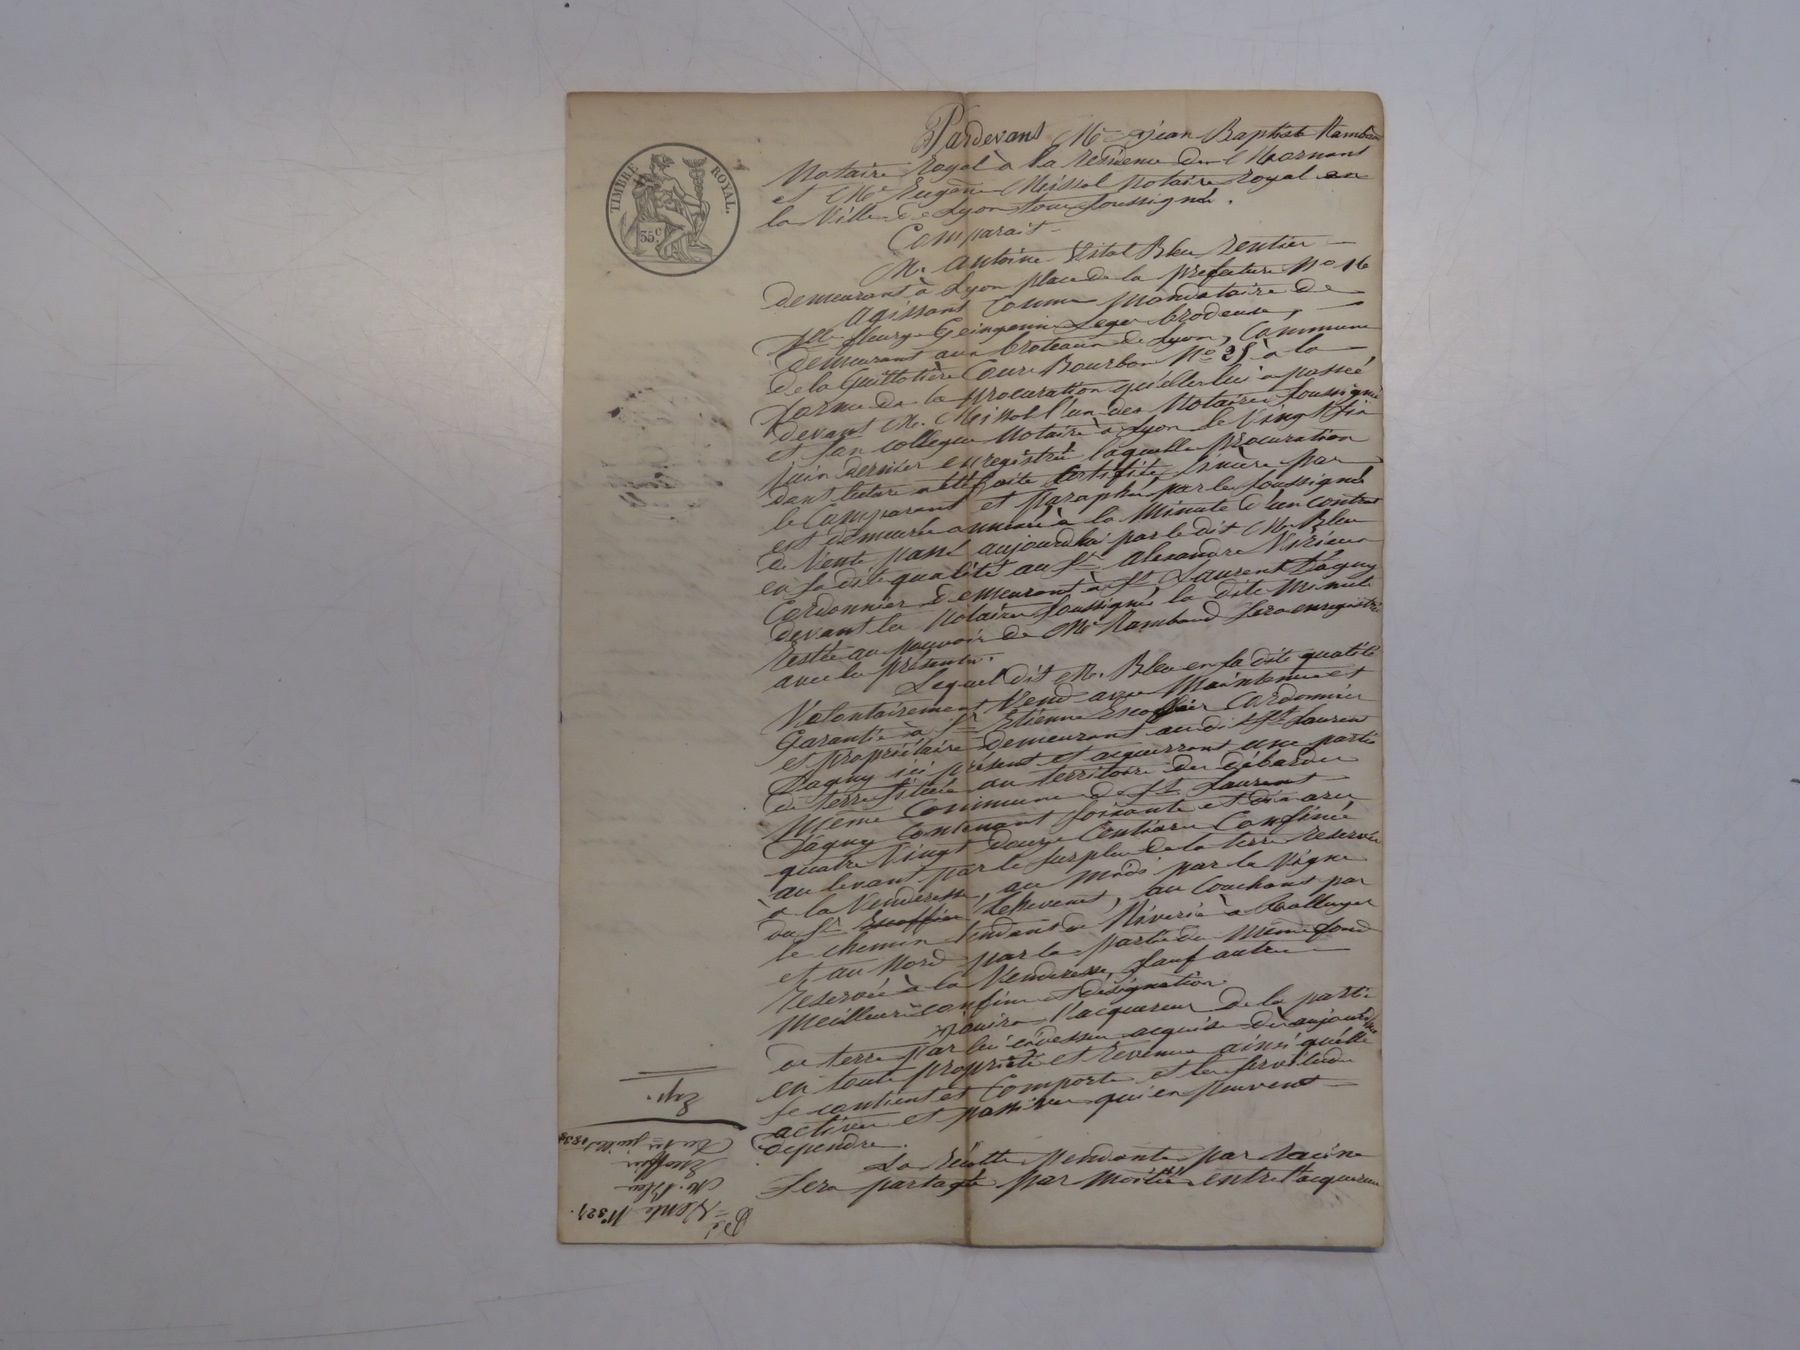 TIMBRE ROYAL.
35 c
Pardevant Me Jean Baptiste Rambaud
Notaire Royal à la résidence de Mornant
et Me Eugène Meissel Notaire Royal en
la Ville de Lyon tous soussignés.
Comparait
M. Antoine Vital Bleu rentier
demeurant à Lyon place de la préfecture No 16
agissant comme mandataire de
Mlle fleurye Leger brodeuse,
demeurant aux broteaux de Lyon, Commune
de la Guillotière Cours Bourbon No 25 à la
forme de la procuration qu'elle lui a passée
devant Me Meissel l'un des Notaires soussignés
et son collègue Notaire à Lyon le Vingt six
juin dernier enregistrée laquelle procuration
dont lecture a été faite certifiée sincère par
le Comparant et paraphée par les soussignés
est demeurée annexée à la Minute d'un contrat
de Vente passé aujourdhui par le dit M. Bleu
en sa dite qualité au Sr. Alexandre Virieux
Cordonnier demeurant à St Laurent D'agny
devant les Notaires soussignés la dite Minute
restée au pouvoir de Me Rambaud sera enregistrée
avec les présentes.
Lequel dit M. Bleu en sa dite qualité
Volontairement Vend avec Maintenue et
Garantie à Sr. Etienne Escoffier Cordonnier
et propriétaire demeurant au dit St Laurent
Dagny ici présent et acquerrant une partie
de terre située au territoire du débaron
Même Commune de St Laurent
Dagny Contenant soixante et dix ares
quatre Vingt douze Centiares Confinée
au levant par le surplus de la terre reservée
à la Venderesse, au Midi par la Vigne
du Sr Escoffier, au Couchant par
le chemin tendant de Riverie à
et au Nord par la partie du Même fond
reservée à la Venderesse, sauf autres
Meilleurs confins et désignation.
Jouira l'acquereur de la partie
de terre par lui cidessus acquise dès aujourdhui
en toute propriété et revenus ainsi quélle
se contient et Comporte et les servitudes
actives et passives qui en peuvent
dépendre.
La Récolte pendante par racine
sera partagée par Moitié entre l'acquereur
Exp.
Du 1er juillet 1838
Escoffier
M. Bleu
Vente No 821.